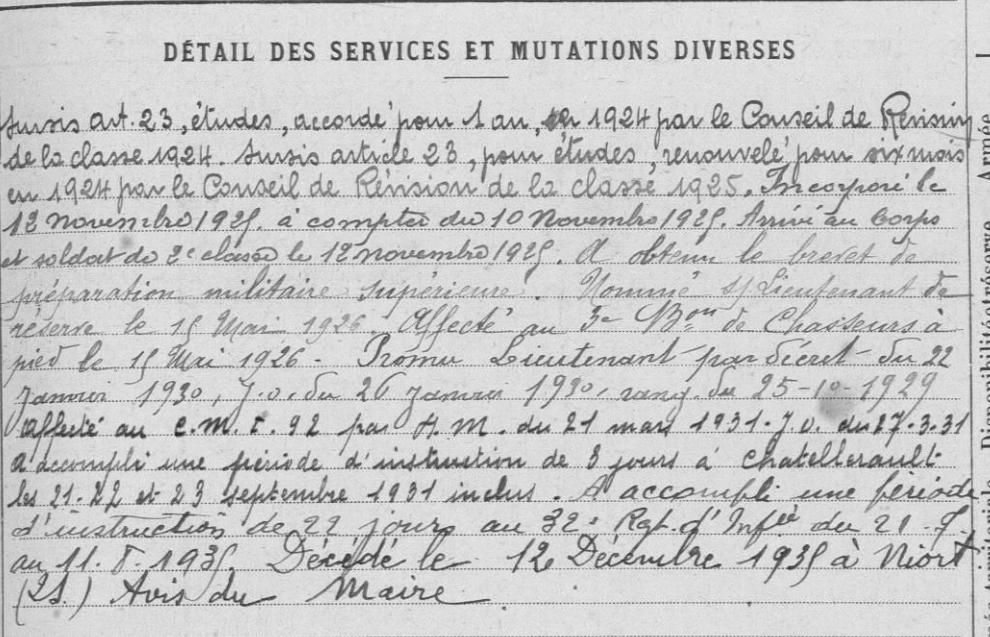 DÉTAIL DES SERVICES ET MUTATIONS DIVERSES
Sursis art. 23, études, accordé pour 1 an, en 1924 par le Conseil de Révision
de la classe 1924. Sursis article 23, pour études, renouvelé pour six mois
en 1924 par le Conseil de Révision de la classe 1925. Incorporé le
12 novembre 1925. à compter du 10 Novembre 1925. Arrivé au Corps
et soldat de 2e classe le 12 novembre 1925. A obtenu le brevet de
préparation militaire supérieure. Nommé s/Lieutenant de
réserve le 15 Mai 1926. Affecté au 3e Bon de Chasseurs à
pied le 15 Mai 1926 - Promu Lieutenant par décret du 22
Janvier 1930, J.O. du 26 Janvier 1930. rang du 25-10-1929
Affecté au C.M.I. 92 par D.M. du 21 mars 1931. J.O. du 27.3.31
A accompli une période d'instruction de 3 jours à Chatellerault
les 21-22 et 23 septembre 1931 inclus. A accompli une période
d'instruction de 22 jours au 32e Rgt. d'Infie du 21
au 11. 1935. Décédé le 12 Décembre 1935 à Niort
(2S.) Avis du Maire
Armée
Disponibilité et réserve